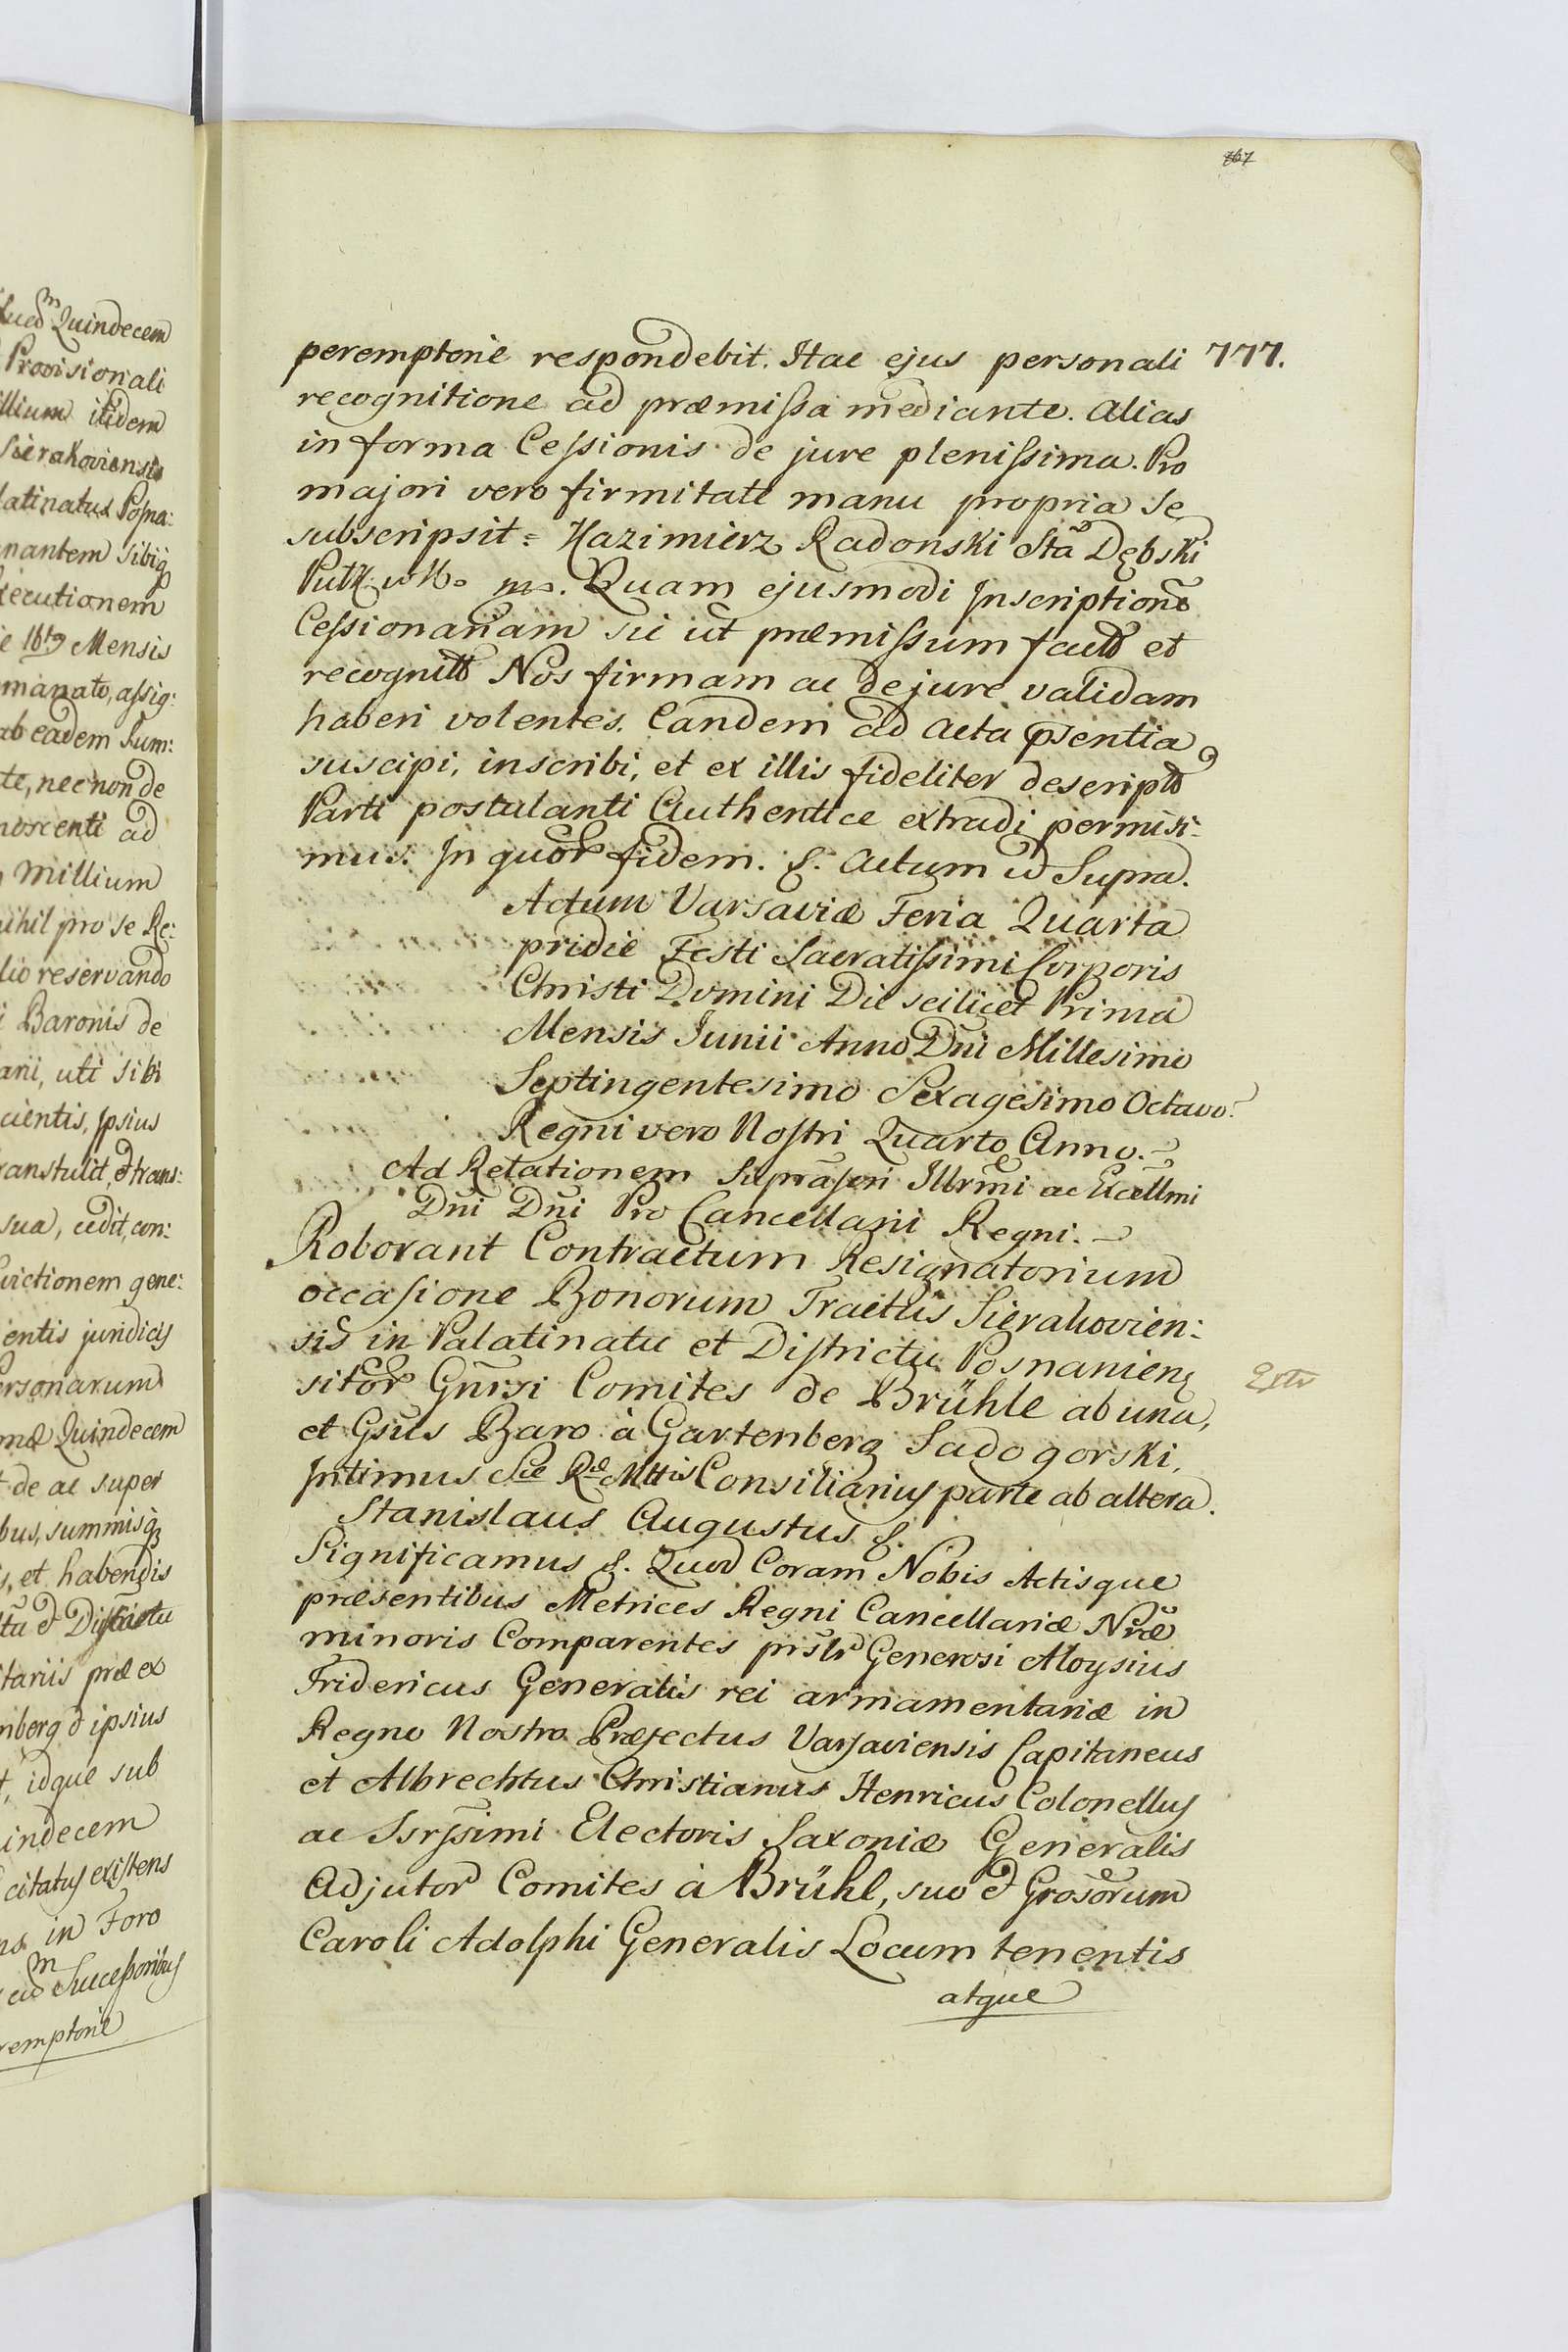 lued^m Quindecem
Provisionali
illium itidem
Sierakoviensis
latinatus Posna:
nantem sibiq
xecutionem
e 16ta Mensis
manato, assig:
ab eadem Sum:
te, nec non de
noscenti ad
Millium
nihil pro se Re:
lio reservando
i Baronis de
ani, uti sibi
cientis, Ipsius
ranstulit, et trans:
sua, cedit, con:
victionem gene:
entis juridicis
ersonarum
mæ Quindecem
t de ac super
bus, summisq
s, et habendis
tu et Districtu
itariis præ ex
nberg et ipsius
t, idque sub
uindecem
citatus existens
ns in Foro
cu^m Successoribus
remptorie
767
777.
peremptorie respondebit. Hac ejus personali
recognitione ad præmissa mediante. alias
in forma Cessionis de jure plenissima. Pro
majori vero firmitate manu propria se
subscripsit = Kazimierz Radonski Sta Dębski
mp. Quam ejusmodi Inscriptione
Cessionariam sic ut præmissum fact et
recognit Nos firmam ac de jure validam
haberi volentes. Eandem ad Acta pñsentia
suscipi, inscribi, et ex illis fideliter descript
Parti postulanti Authentice extradi permisi:
mus. In quor fidem. &. Actum ut Supra.
Actum Varsaviæ Feria Quarta
pridie Festi Sacratissimi Corporis
Christi Domini Die scilicet Prima
Mensis Junii Anno Dni Millesimo
Septingentesimo Sexagesimo Octavo.
Regni vero Nostri Quarto Anno.
Ad Relationem Suprascri Illrmi ac Excellmi
Dni Dni Pro Cancellarii Regni.
Roborant Contractum Resignatorium
occasione Bonorum Tractus Sierakovien:
sis in Palatinatu et Districtu Posnanien
sitor Gnrsi Comites de Brühle ab una,
et Gsus Baro à Gartenberg Sadogorski,
Intimus Sæ Ræ Mttis Consiliarius parte ab altera.
Extr
Stanislaus Augustus &.
Significamus &. Quod Coram Nobis Actisque
præsentibus Metrices Regni Cancellariæ Nræ
minoris Comparentes prslr Generosi Aloysius
Fridericus Generalis rei armamentariæ in
Regno Nostro Præfectus Varsaviensis Capitaneus
et Albrechtus Christianus Henricus Colonellus
ac Ssrssimi Electoris Saxoniæ Generalis
Adjutor Comites à Brühl, suo et Grosorum
Caroli Adolphi Generalis Locum tenentis
atque